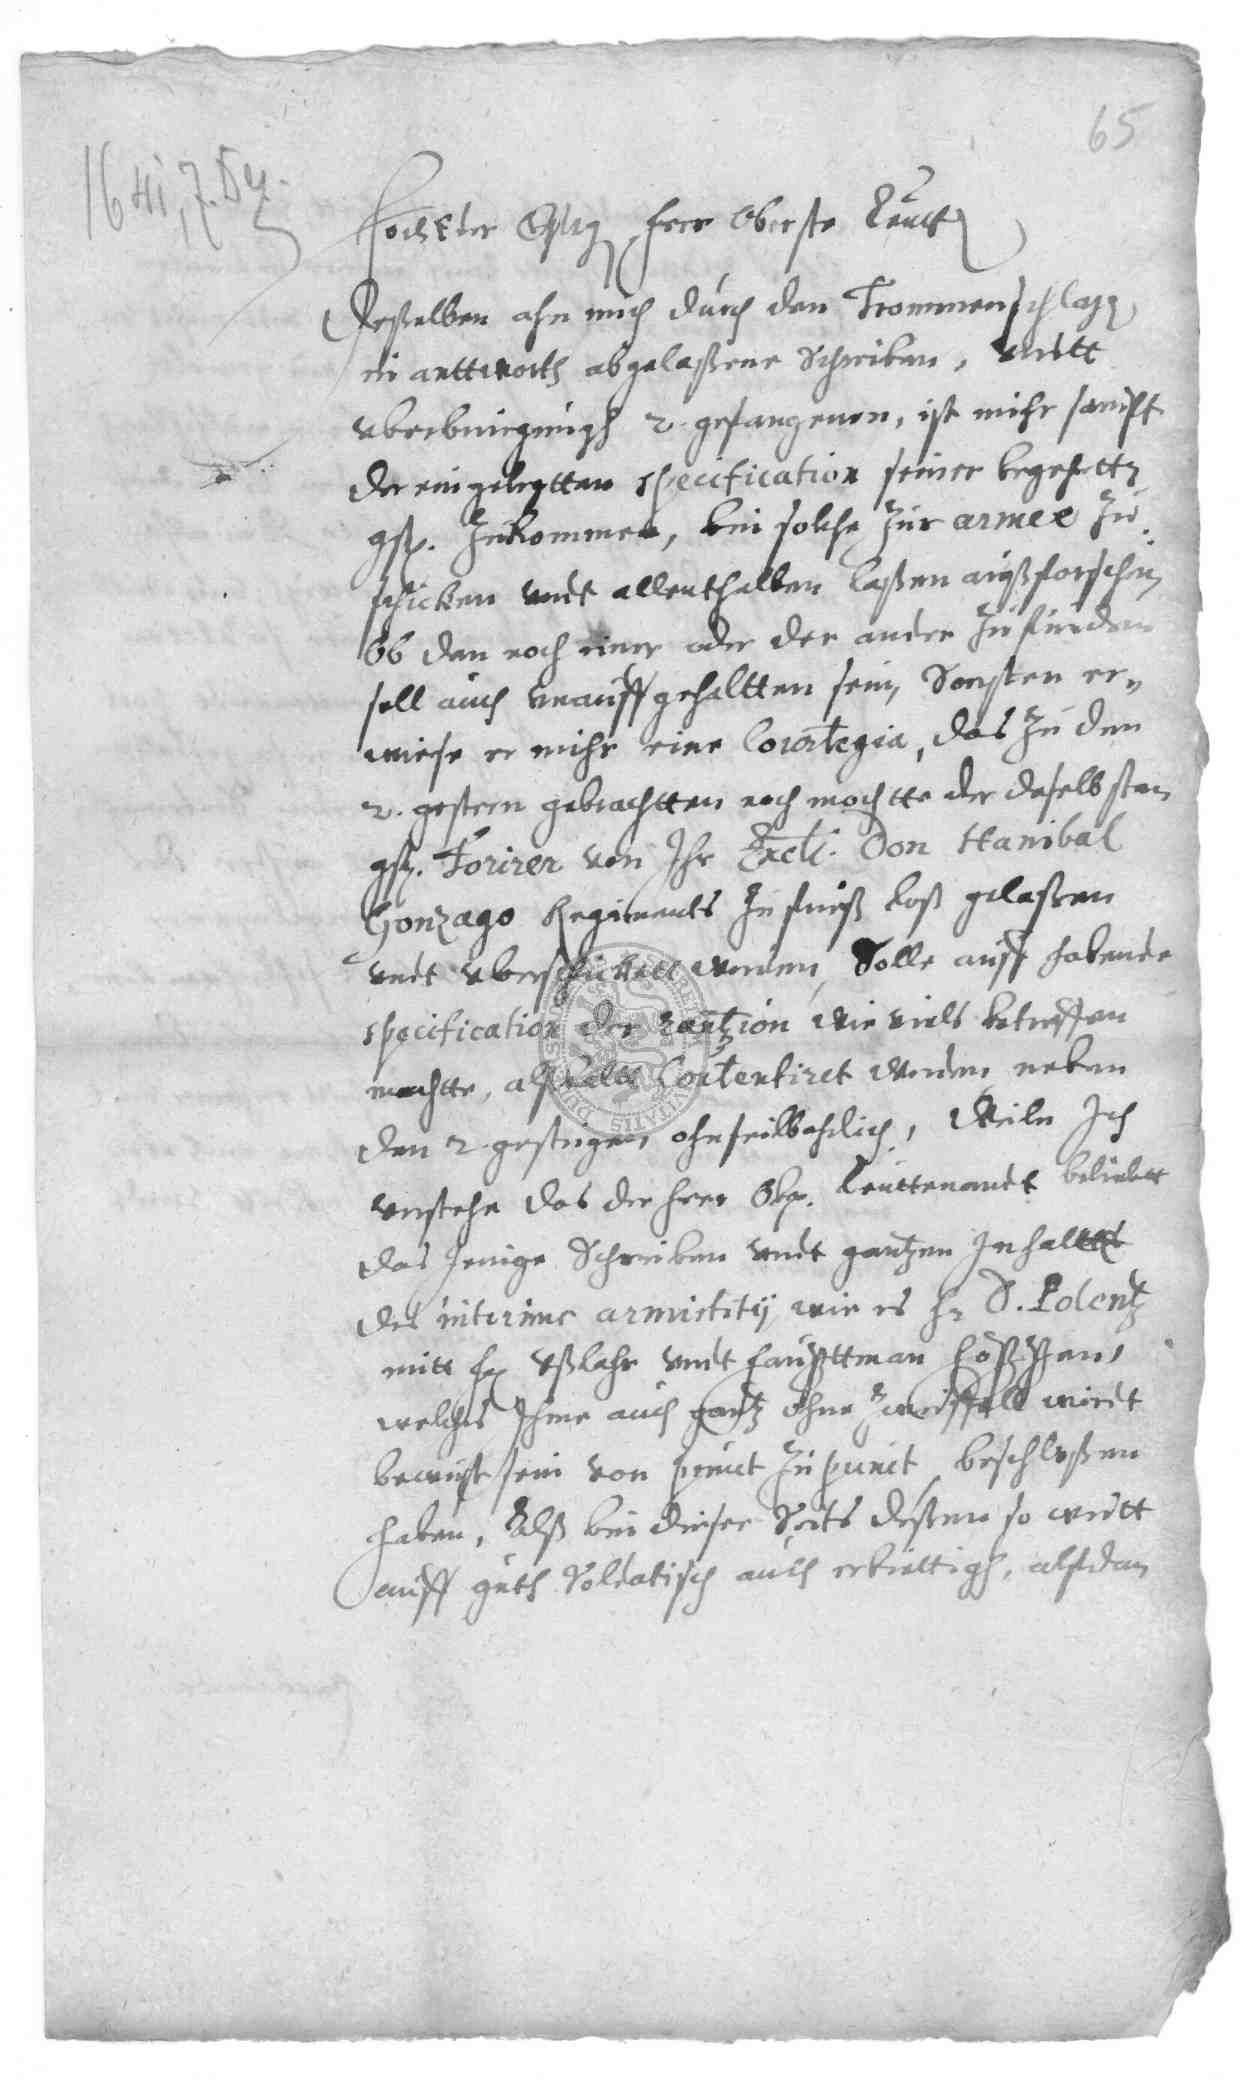 65
1641, 7. 
Herr Oberste Leut
Deßelben ahn mich durch den Trommenschlag
in anttworth abgelaßene Schreiben, undt
uberbringungh 2 gefangenen, ist mihr sampt
der eingelegtten specification seiner begehrtten
gef. Zukommen, bin solche Zur armee Zu
schicken undt allenthalben laßen außforschen,
Ob dan noch einer oder der ander Zu finden
soll auch unauffgehaltten sein, Sonsten er„
wiese er mihr eine , das Zu den
2. gestern gebrachtten noch mochtte der daselbsten
gef. Forirer von Ihr Excell. Don Hanibal
Gonzago Regiments Zu fueß loß gelaßen
undt uberschickett werden, Solle auff habende
specification der rantzion wie viels betreffen
mochtte, alsbaldt Contentiret werden neben
den 2 gestrigen ohnfeilbahrlich, Weiln Ich
verstehe das der Herr Obr. Leuttenandt beliebet
das Jenige Schreiben undt gantzen Inhalttes
des interims armistitij wie es H. O. Polentz
mitt H. undt haupttman
welches Ihme auch gantz ohne Zweiffell wirdt
bewust sein von punct Zu punct beschloßen
haben, Alß bin dieser Seits deßen so weitt
auff guth Soldatisch auch erbiettigh, alsdan